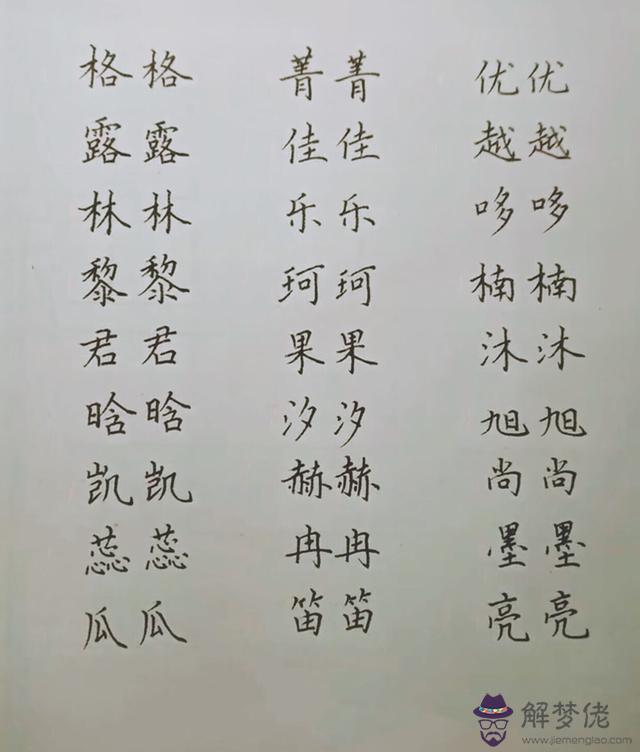 格格 菁菁 优优
露露 佳佳 越越
林林 乐乐 哆哆
黎黎 珂珂 楠楠
君君 果果 沐沐
晗晗 汐汐 旭旭
凯凯 赫赫 尚尚
蕊蕊 冉冉 墨墨
瓜瓜 笛笛 亮亮
解梦佬
www.jiemenglao.com